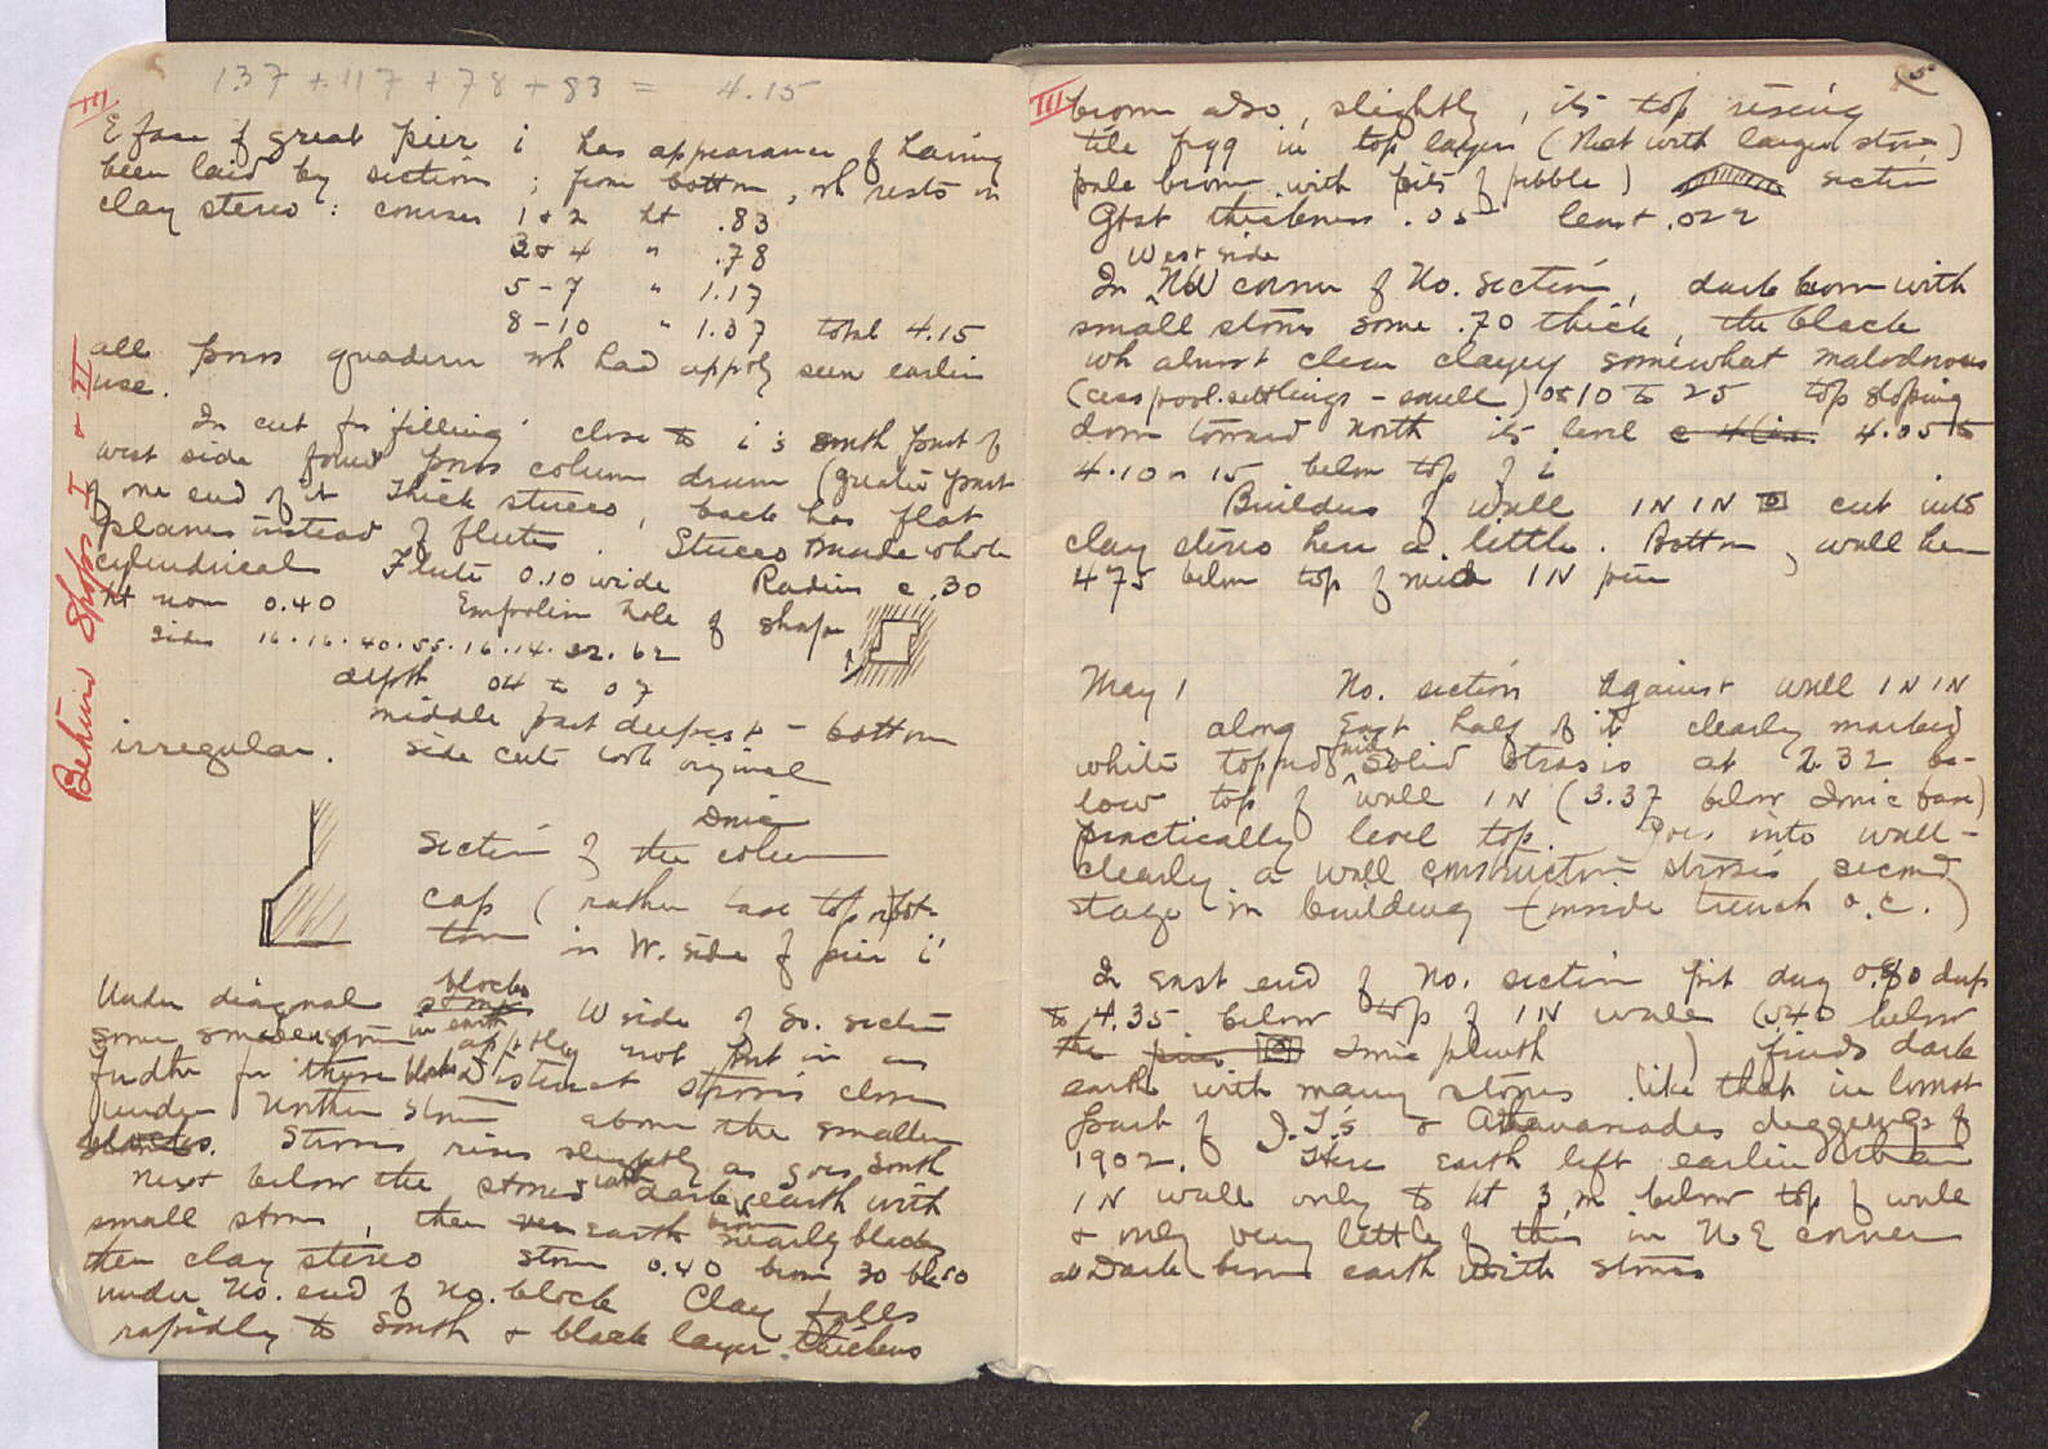 137 + 117 + 78 + 83 = 4.15
III
E face of great pier i has appearance of having
been laid by sections ; from bottom, wh rests on
clay stereo : courses 1 + 2 ht .83
3 + 4 " .78
5 - 7 " 1.17
8 - 10 " 1.37 total 4.15
all poros quadern wh had apptly seen earlier
use.
In cut for 'filling' close to i's south part of
west side found poros column drum (greater part
of one end of it thick stucco, back has flat
planes instead of flutes. Stucco made whole
cylindrical Flute 0.10 wide Radius c .30
ht now 0.40 Empolion hole of shape
sides 16.16.40.55.16.14.32.62
depth 04 to 07
middle part deepest - bottom
irregular. side cuts look original
Behind Shops I + II
Ionic
Section of the column
cap (rather base top or bot-
tom in W. side of pier i'
Under diagonal blocks W side of So. section
some in earth apptly not put in as
under northern stone above the smaller
blocks. Strosis rises slightly as goes South
Next below the stones dark earth with
small stones, then earth brown nearly black,
then clay stereo stones 0.40 brown 30 bl 10
under No. end of No. block Clay falls
rapidly to South + black layer thickens
5
III brown also, slightly, its top rising
tile frgg in top layer (Not with larger stones)
pale brown with bits of pebble) section
Gtst thickness .05 least .022
West side
In NW corner of No. section, dark brown with
small stones some .70 thick, the black
wh almost clear clayey somewhat malodorous
(cesspool settlings - smell) 10 to 25 top sloping
down toward north its level 4.05 to
4.10 - 15 below top of i
Builders of wall 1N 1N cut into
clay stereo here a little. Bottom, wall here
4 75 below top of mid 1N pier
May 1 No. section Against wall 1N 1N
along East half of it clearly marked
white topped solid strosis at 2.32 be-
low top of wall 1N (3.37 below Ionic base)
practically level top. Goes into wall -
clearly a wall construction strosis second
stage in building (inside trench o.c.)
In east end of No. section pit dug 0.80 deep
to 4.35 below top of 1N wall (5.40 below
the pier Ionic plinth) finds dark
earth with many stones like that in lowest
part of J.T.'s + Athavanades diggings of
1902. Here earth left earlier
1N wall only to ht 3 m below top of wall
+ only very little of this in N E corner
all Dark brown earth with stones